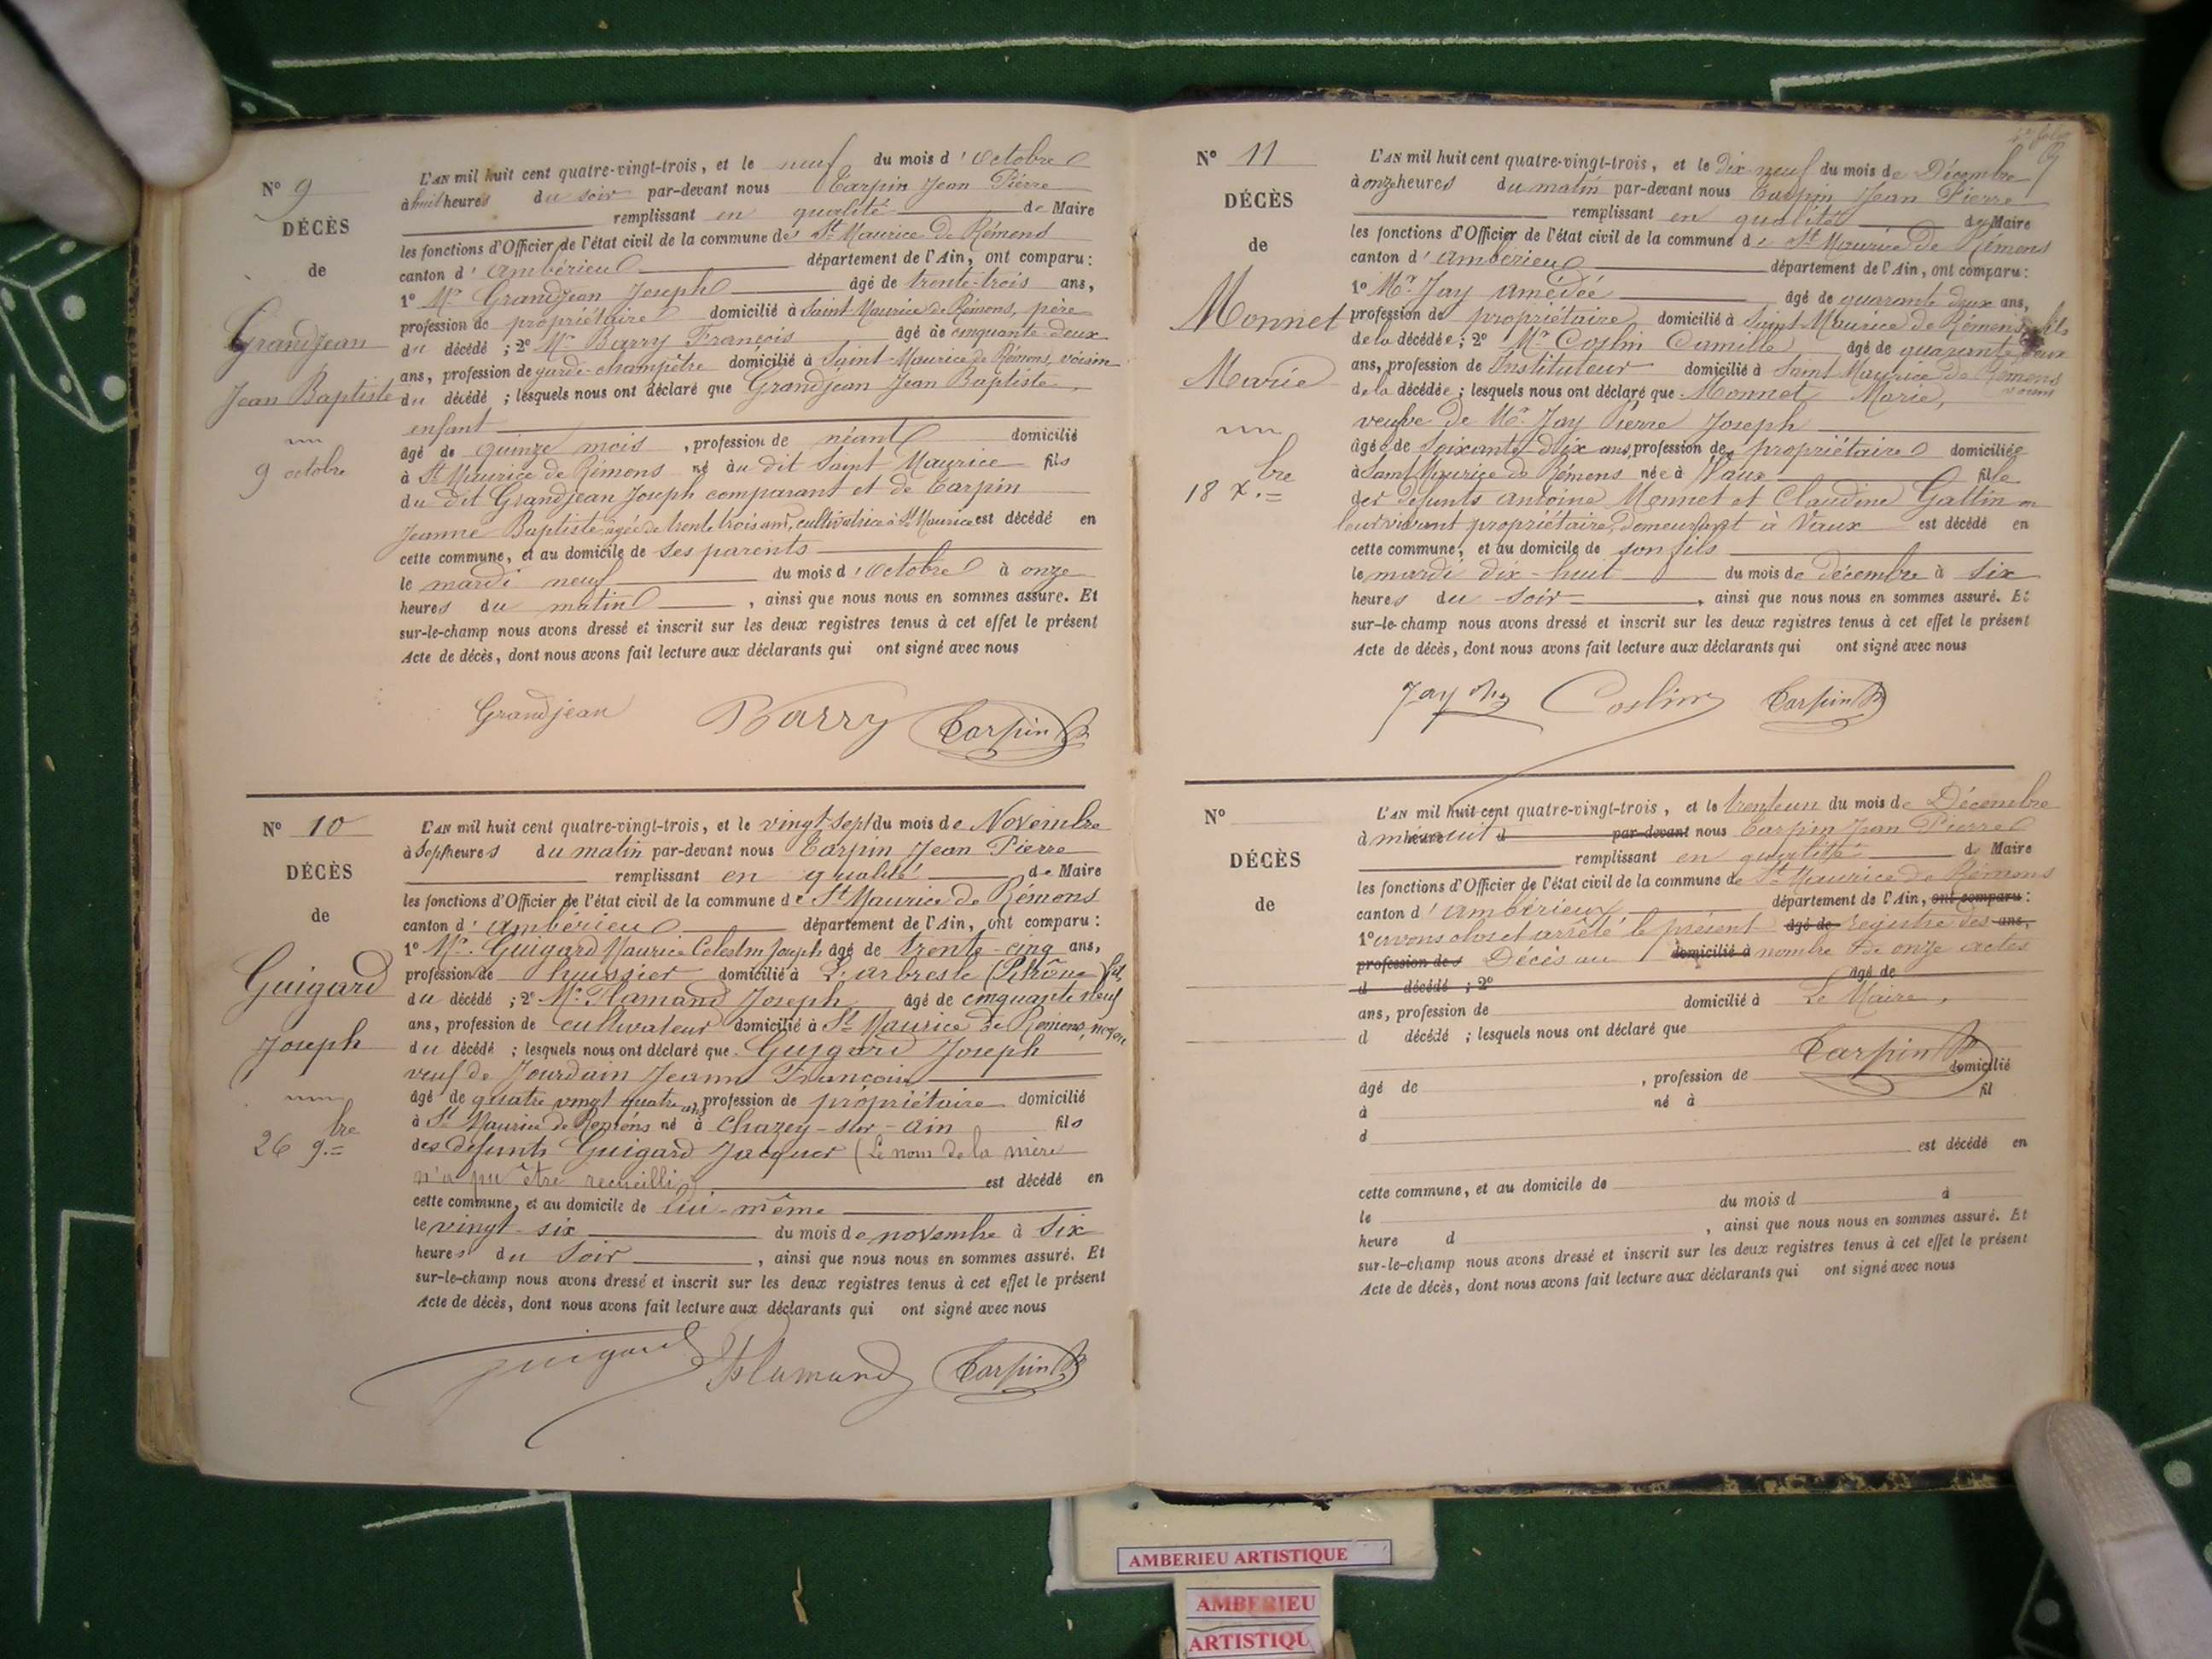 N° 9
DÉCÈS
de
Grandjean
Jean Baptiste
9 octobre
L'AN mil huit cent quatre-vingt-trois, et le neuf du mois d'Octobre
à huit heures du soir par-devant nous Carpin Jean Pierre
remplissant en qualité de Maire
les fonctions d'Officier de l'état civil de la commune de St Maurice de Rémens
canton d'ambérieu département de l'Ain, ont comparu :
1° Mr Grandjean Joseph âgé de trente-trois ans,
profession de propriétaire domicilié à Saint-Maurice de Rémens, père
du décédé ; 2° Mr Barry François âgé de cinquante-deux
ans, profession de garde-champêtre domicilié à Saint-Maurice de Rémens, voisin
du décédé ; lesquels nous ont déclaré que Grandjean Jean Baptiste
enfant
âgé de quinze mois, profession de néant domicilié
à St Maurice de Rémens né au dit Saint Maurice fils
du dit Grandjean Joseph comparant et de Carpin
Jeanne Baptiste âgée de trente trois ans, cultivatrice à St Maurice est décédé en
cette commune, et au domicile de ses parents
le mardi neuf du mois d'Octobre à onze
heures du matin, ainsi que nous nous en sommes assuré. Et
sur-le-champ nous avons dressé et inscrit sur les deux registres tenus à cet effet le présent
Acte de décès, dont nous avons fait lecture aux déclarants qui ont signé avec nous
Grandjean Barry Carpin
N° 10
DÉCÈS
de
Guigard
Joseph
26 9.bre
L'AN mil huit cent quatre-vingt-trois, et le vingt-sept du mois de Novembre
à sept heures du matin par-devant nous Carpin Jean Pierre
remplissant en qualité de Maire
les fonctions d'Officier de l'état civil de la commune de St Maurice de Rémens
canton d'ambérieu département de l'Ain, ont comparu :
1° Mr. Guigard Maurice Celestin Joseph âgé de trente-cinq ans,
profession de huissier domicilié à L'arbresle (Rhône) fils
du décédé ; 2° Mr Flamand Joseph âgé de cinquante neuf
ans, profession de cultivateur domicilié à St Maurice de Rémens, neveu
du décédé ; lesquels nous ont déclaré que Guigard Joseph
veuf de Jourdain Jeanne Françoise
âgé de quatre vingt quatre ans, profession de propriétaire domicilié
à St Maurice de Rémens né à Chazey-sur-Ain fils
des defunts Guigard Jacques (Le nom de la mère
n'a pu être recueilli) est décédé en
cette commune, et au domicile de lui-même
le vingt-six du mois de novembre à six
heures du soir, ainsi que nous nous en sommes assuré. Et
sur-le-champ nous avons dressé et inscrit sur les deux registres tenus à cet effet le présent
Acte de décès, dont nous avons fait lecture aux déclarants qui ont signé avec nous
Guigard Flamand Carpin
N° 11
DÉCÈS
de
Monnet
Marie
18 X.bre
L'AN mil huit cent quatre-vingt-trois, et le dix neuf du mois de Décembre
à onze heures du matin par-devant nous Carpin Jean Pierre
remplissant en qualité de Maire
les fonctions d'Officier de l'état civil de la commune de St Maurice de Rémens
canton d'ambérieu département de l'Ain, ont comparu :
1° Mr. Jay amédée âgé de quarante deux ans,
profession de propriétaire domicilié à Saint-Maurice de Rémens, fils
de la décédée ; 2° Mr Coslin Camille âgé de quarante deux
ans, profession de Instituteur domicilié à Saint Maurice de Rémens
voisin
de la décédée ; lesquels nous ont déclaré que Monnet Marie,
veuve de Mr. Jay Pierre Joseph
âgée de soixante dix ans, profession de propriétaire domiciliée
à Saint Maurice de Rémens née à Vaux fille
des defunts antoine Monnet et Claudine Gallin
leur vivant propriétaire, demeurant à Vaux est décédé en
cette commune, et au domicile de son fils
le mardi dix-huit du mois de décembre à six
heures du soir, ainsi que nous nous en sommes assuré. Et
sur-le-champ nous avons dressé et inscrit sur les deux registres tenus à cet effet le présent
Acte de décès, dont nous avons fait lecture aux déclarants qui ont signé avec nous
Jay Coslin Carpin
N°
DÉCÈS
de
L'AN mil huit cent quatre-vingt-trois, et le trente un du mois de Décembre
à minuit par-devant nous Carpin Jean Pierre
remplissant en qualité de Maire
les fonctions d'Officier de l'état civil de la commune de St Maurice de Rémens
canton d'ambérieux département de l'Ain, ont comparu :
1° avons clos et arrêté le présent âgé de registre des ans,
profession de Décès au domicilié à nombre de onze actes
d décédé ; 2° âgé de
ans, profession de domicilié à Le Maire,
d décédé ; lesquels nous ont déclaré que
Carpin
âgé de , profession de domicilié
à né à fil
d
est décédé en
cette commune, et au domicile de
le du mois d à
heure d , ainsi que nous nous en sommes assuré. Et
sur-le-champ nous avons dressé et inscrit sur les deux registres tenus à cet effet le présent
Acte de décès, dont nous avons fait lecture aux déclarants qui ont signé avec nous
AMBERIEU ARTISTIQUE
AMBERIEU
ARTISTIQU